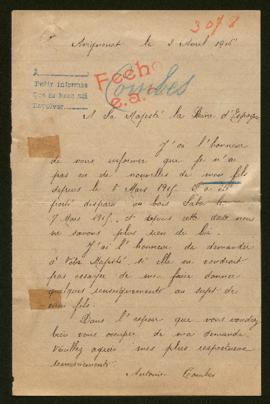 3078
Avignonet le 3 Avril 1916
A
Pedir informes
Que no hace mil
Fecho
e.a.
Combes
A Sa Majesté la Reine d'Espagne
J'ai l'honneur
de vous informer que je n'ai
pas eu de nouvelles de mon fils
depuis le 8 Mars 1915. Il a été
porté disparu au bois Sabot le
7 Mars 1915, et depuis cette date nous
ne savons plus rien de lui.
J'ai l'honneur de demander
à Votre Majesté si elle ne voudrait
pas essayer de me faire donner
quelques renseignements au sujet de
mon fils.
Dans l'espoir que vous voudrez
bien vous occuper de ma demande
veuillez agréer mes plus respectueux
remerciements.
Antoine Combes